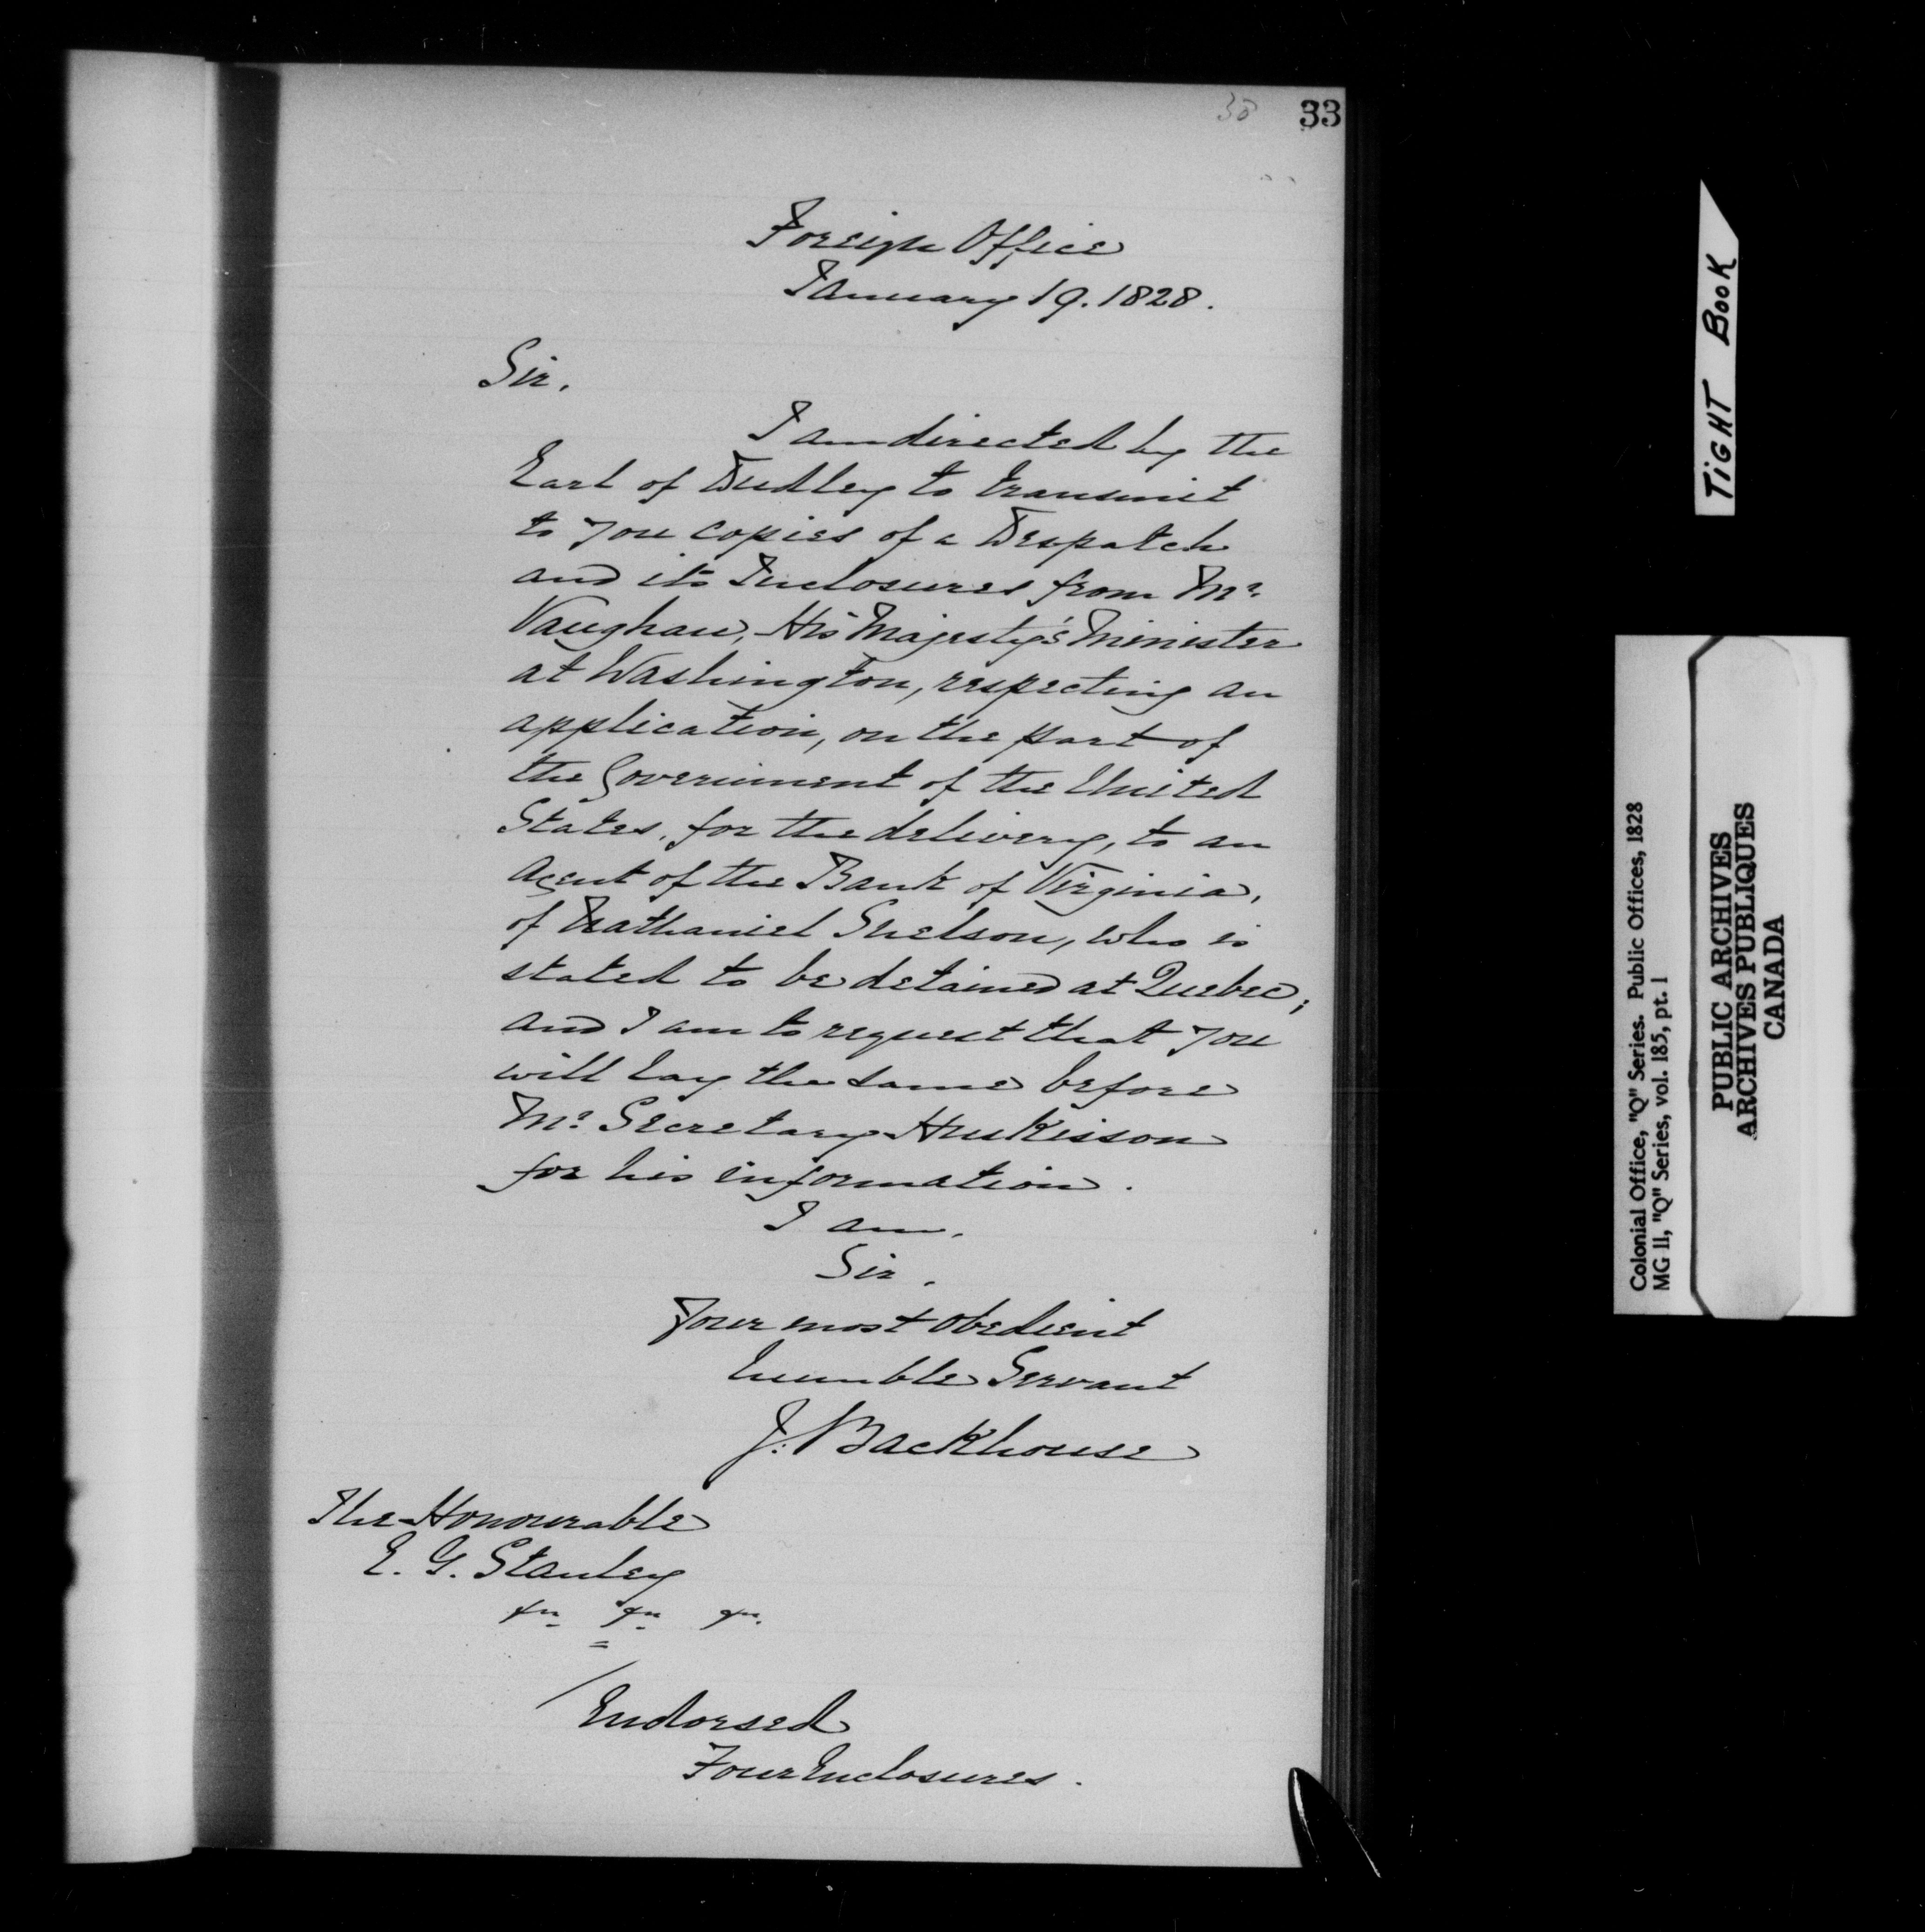 33
Foreign Office
January 19. 1828.
Sir,
I am directed by the
Earl of Dudley to transmit
to you copies of a Despatch
and its Inclosures from Mr.
Vaughan, His Majesty's Minister
at Washington, respecting an
application, on the part of
the Government of the United
States, for the delivery, to an
Agent of the Bank of Virginia,
of Nathaniel Snelson, who is
stated to be detained at Quebec;
and I am to request that you
will lay the same before
Mr. Secretary Huskisson
for his information.
I am,
Sir,
Your most obedient
humble Servant
J. Backhouse
The Honourable
E. G. Stanley
Endorsed
Four Enclosures.
TIGHT BOOK
Colonial Office, "Q" Series. Public Offices, 1828
MG 11, "Q" Series, vol. 185, pt. 1
PUBLIC ARCHIVES
ARCHIVES PUBLIQUES
CANADA